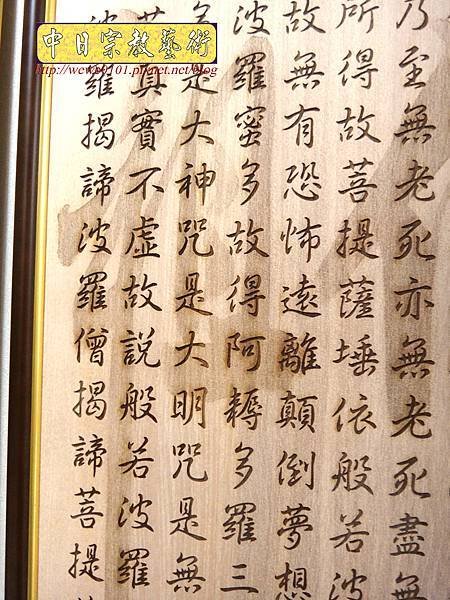 中日宗教藝術
http://wewin101.pixnet.net/blog
乃至無老死亦無老死盡無
所得故菩提薩埵依般若波
故無有恐怖遠離顛倒夢想
波羅蜜多故得阿耨多羅三
是大神咒是大明咒是無
真實不虛故說般若波羅
羅揭諦波羅僧揭諦菩提